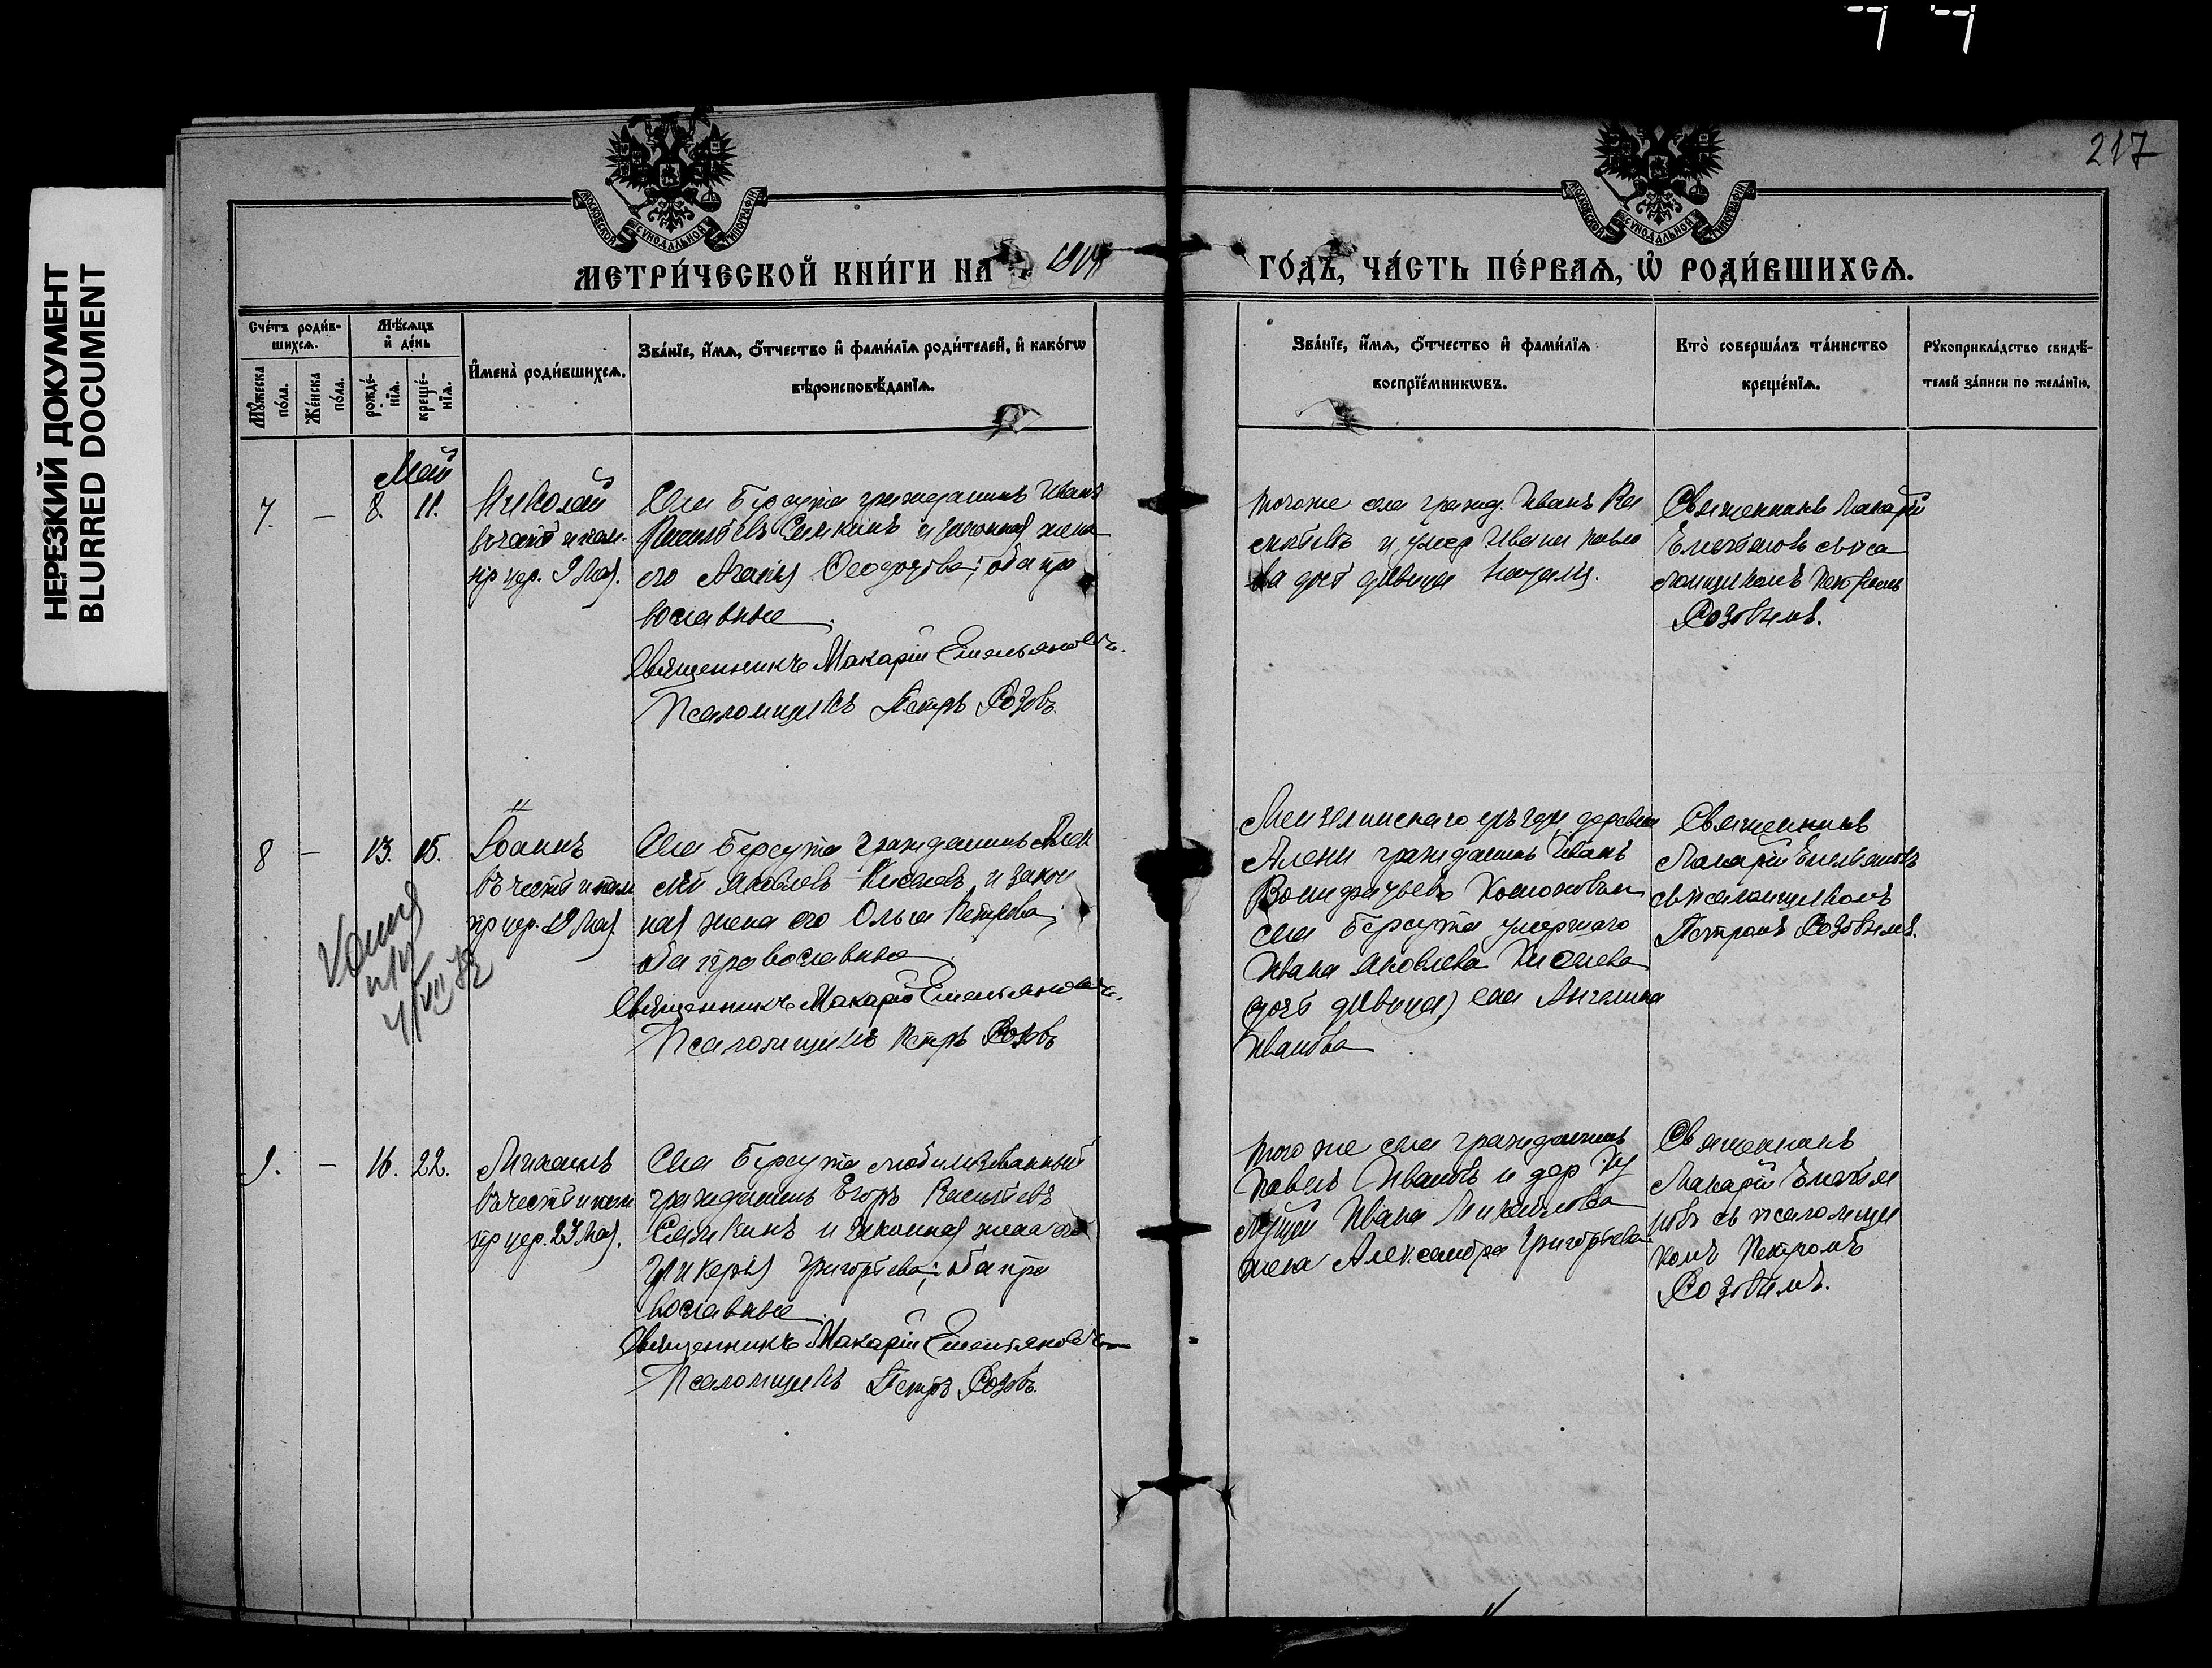 НЕРЕЗКИЙ ДОКУМЕНТ
BLURRED DOCUMENT
217
МОСКОВСКОЙ СУНОДАЛЬНОЙ ТИПОГРАФІИ
МОСКОВСКОЙ СУНОДАЛЬНОЙ ТИПОГРАФІИ
МЕТРИ́ЧЕСКОЙ КНИ́ГИ НА
ГО́ДЪ, ЧА́СТЬ ПЕ́РВАѦ, Ѡ҆ РОДИ́ВШИХСѦ.
Сче́тъ роди́в-
шихсѧ.
Мѣ́сѧцъ
и҆ де́нь
Мꙋ́жеска
по́ла.
Же́нска
по́ла.
рожде́-
нїѧ.
креще́-
нїѧ.
И҆мена̀ роди́вшихсѧ.
Зва́нїе, и҆́мѧ, ѻ҆́тчество и҆ фами́лїѧ роди́телей, и҆ како́гѡ
вѣроисповѣ́данїѧ.
Зва́нїе, и҆́мѧ, ѻ҆́тчество и҆ фами́лїѧ
воспрїе́мникѡвъ.
Кто̀ соверша́лъ та́инство
креще́нїѧ.
Рꙋкоприкла́дство свидѣ́-
телей за́писи по жела́нїю.
Май
7.
—
8.
11.
Николай
въ честь и пам.
пр. цер. 9 Мая.
Села Берсута гражданинъ Иванъ
Васильевъ Симкинъ и законная жена
его Агапія Ѳеодорова; оба пра
вославные
Священникъ Макарій Емельяновъ.
Псаломщикъ Петръ Розовъ.
Того же села гражд. Иванъ Ва
сильевъ и умер. Ивана Павло
ва дочь дѣвица
Священникъ Макарій
Емельяновъ съ пса
ломщикомъ Петромъ
Розовымъ.
8
—
13.
15.
Іоаннъ
въ честь и пам.
пр. цер. Мая.
Села Берсута гражданинъ Алек
сѣй Яковлевъ Киселевъ и закон
ная жена его Ольга Петрова;
оба православные
Священникъ Макарій Емельяновъ.
Псаломщикъ Петръ Розовъ
Мензелинскаго уѣзда деревни
гражданинъ Иванъ
села Берсута умершаго
Ивана Яковлева Киселева
дочь дѣвица Ангелина
Иванова
Священникъ
Макарій Емельяновъ
съ псаломщикомъ
Петромъ Розовымъ.
9.
—
16.
22.
Михаилъ
въ честь и пам.
пр. цер. 23 Мая.
Села Берсута мобилизованный
гражданинъ Егоръ Васильевъ
Симкинъ и законная жена его
Гликерія Григорьева; оба пра
вославные
Священникъ Макарій Емельяновъ
Псаломщикъ Петръ Розовъ.
Того же села гражданинъ
Павелъ Ивановъ и дер.
Ивана Михайлова
жена Александра Григорьева
Священникъ
Макарій Емелья
новъ съ псаломщи
комъ Петромъ
Розовымъ.